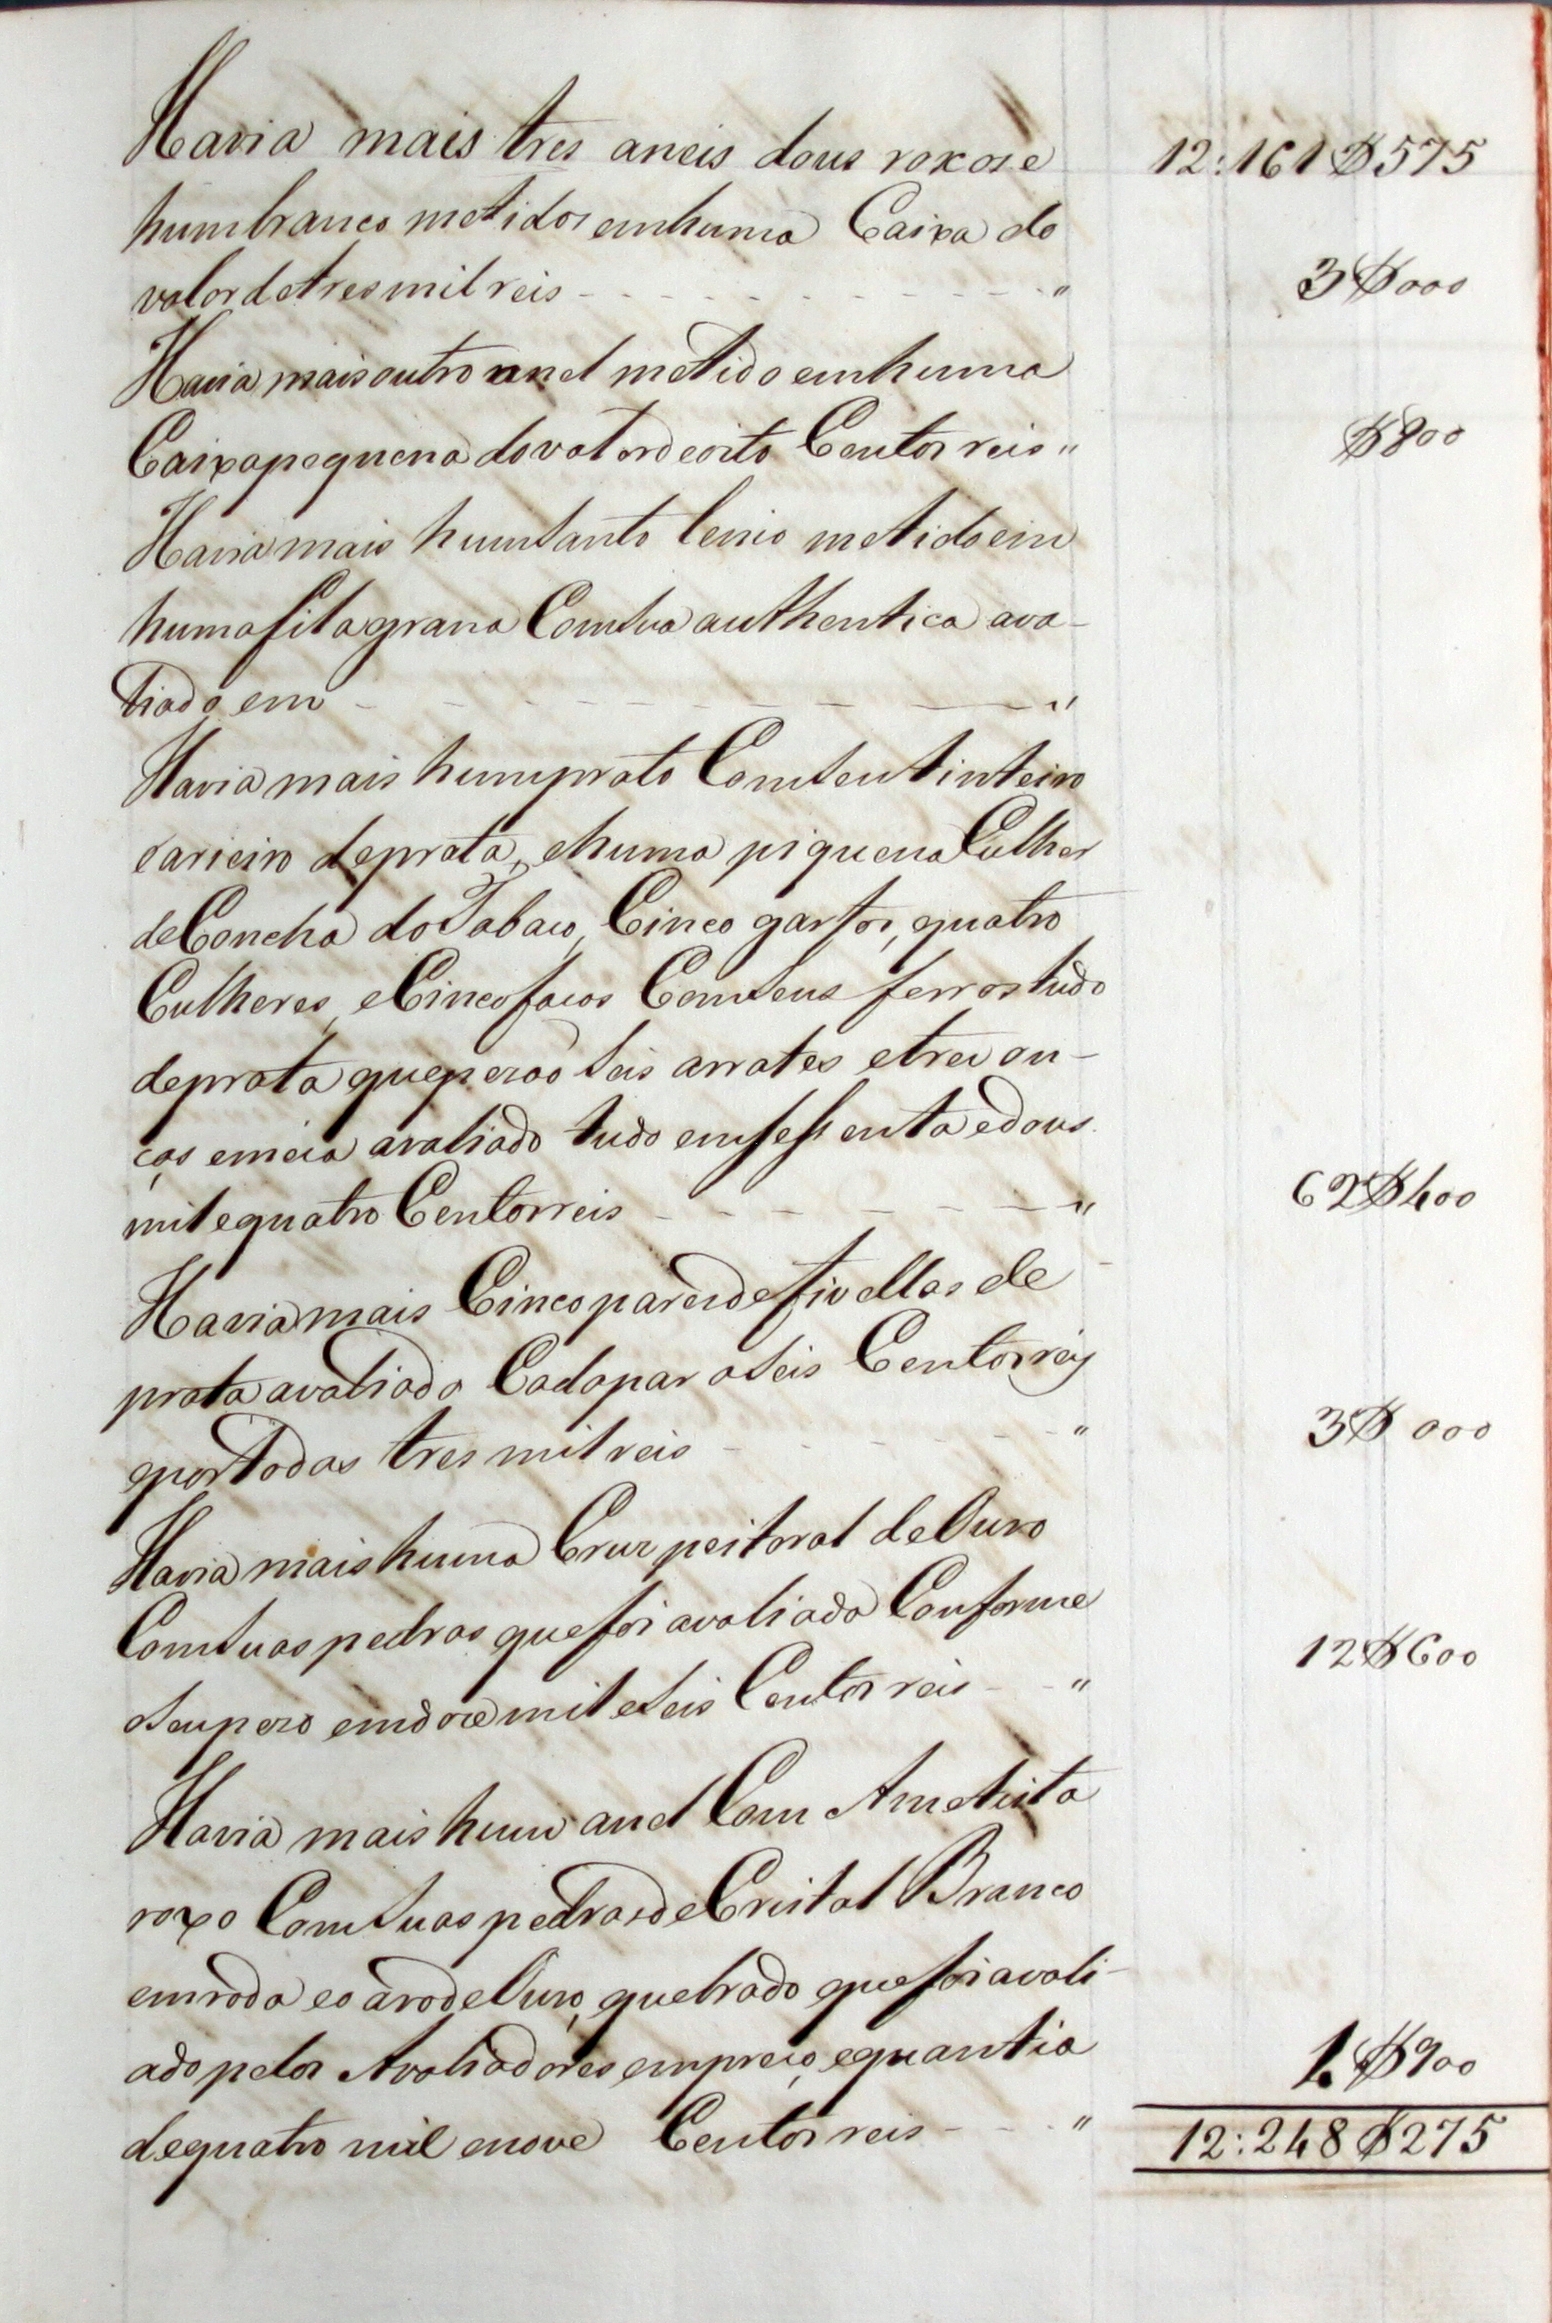 Havia mais tres aneis dous roxos e 12:161$575
hum branco metidos em huma Caixa do
valor de tres mil reis - - - - - - - - - - - " 3$000
Havia mais outro anel metido em huma
Caixa pequena do valor de oito Centos reis " $800
Havia mais hum santo lenio metido em
huma filagrana Com sua authentica ava-
liado em - - - - - - - - - - "
Havia mais hum prato Com seu tinteiro
e arieiro de prata, e huma piquena Culher
de Concha do Tabaco, Cinco garfos, quatro
Culheres, e Cinco facos Com seus ferros tudo
de prata que pezaõ seis arrates e trez on-
ças e meia avaliado tudo em sessenta e dous
mil e quatro Centos reis - - - - - - - " 62$400
Havia mais Cinco pares de fivellas de
prata avaliada Cada par a seis Centos reis
e por todas tres mil reis - - - - - - " 3$000
Havia mais huma Cruz peitoral de Ouro
Com suas pedras que foi avaliada Conforme
o seu pezo em doze mil e seis Centos reis - - " 12$600
Havia mais hum anel Com Ametista
roxo Com suas pedras de Cristal Branco
em roda e o aro de Ouro, quebrado que foi avali-
ado pelos Avaliadores em preço, e quantia
de quatro mil e nove Centos reis - - - " 4$900
12:248$275